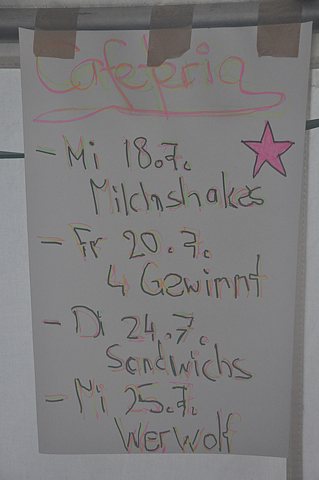 Cafeteria
- Mi 18.7.
Milchshakes
- Fr 20.7.
4 Gewinnt
- Di 24.7.
Sandwichs
- Mi 25.7.
Werwolf